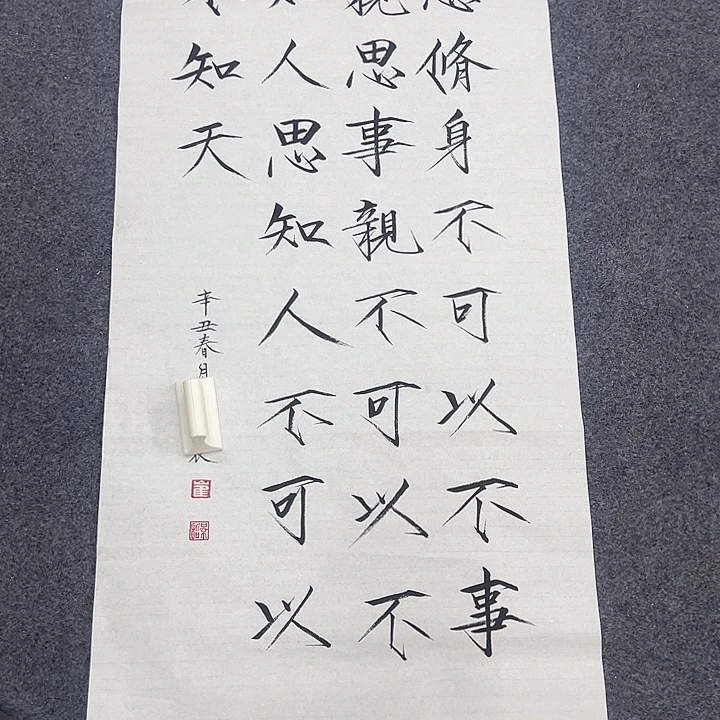 思脩身不可以不事
親思事親不可以不
知人思知人不可以
不知天
辛丑春月
崔